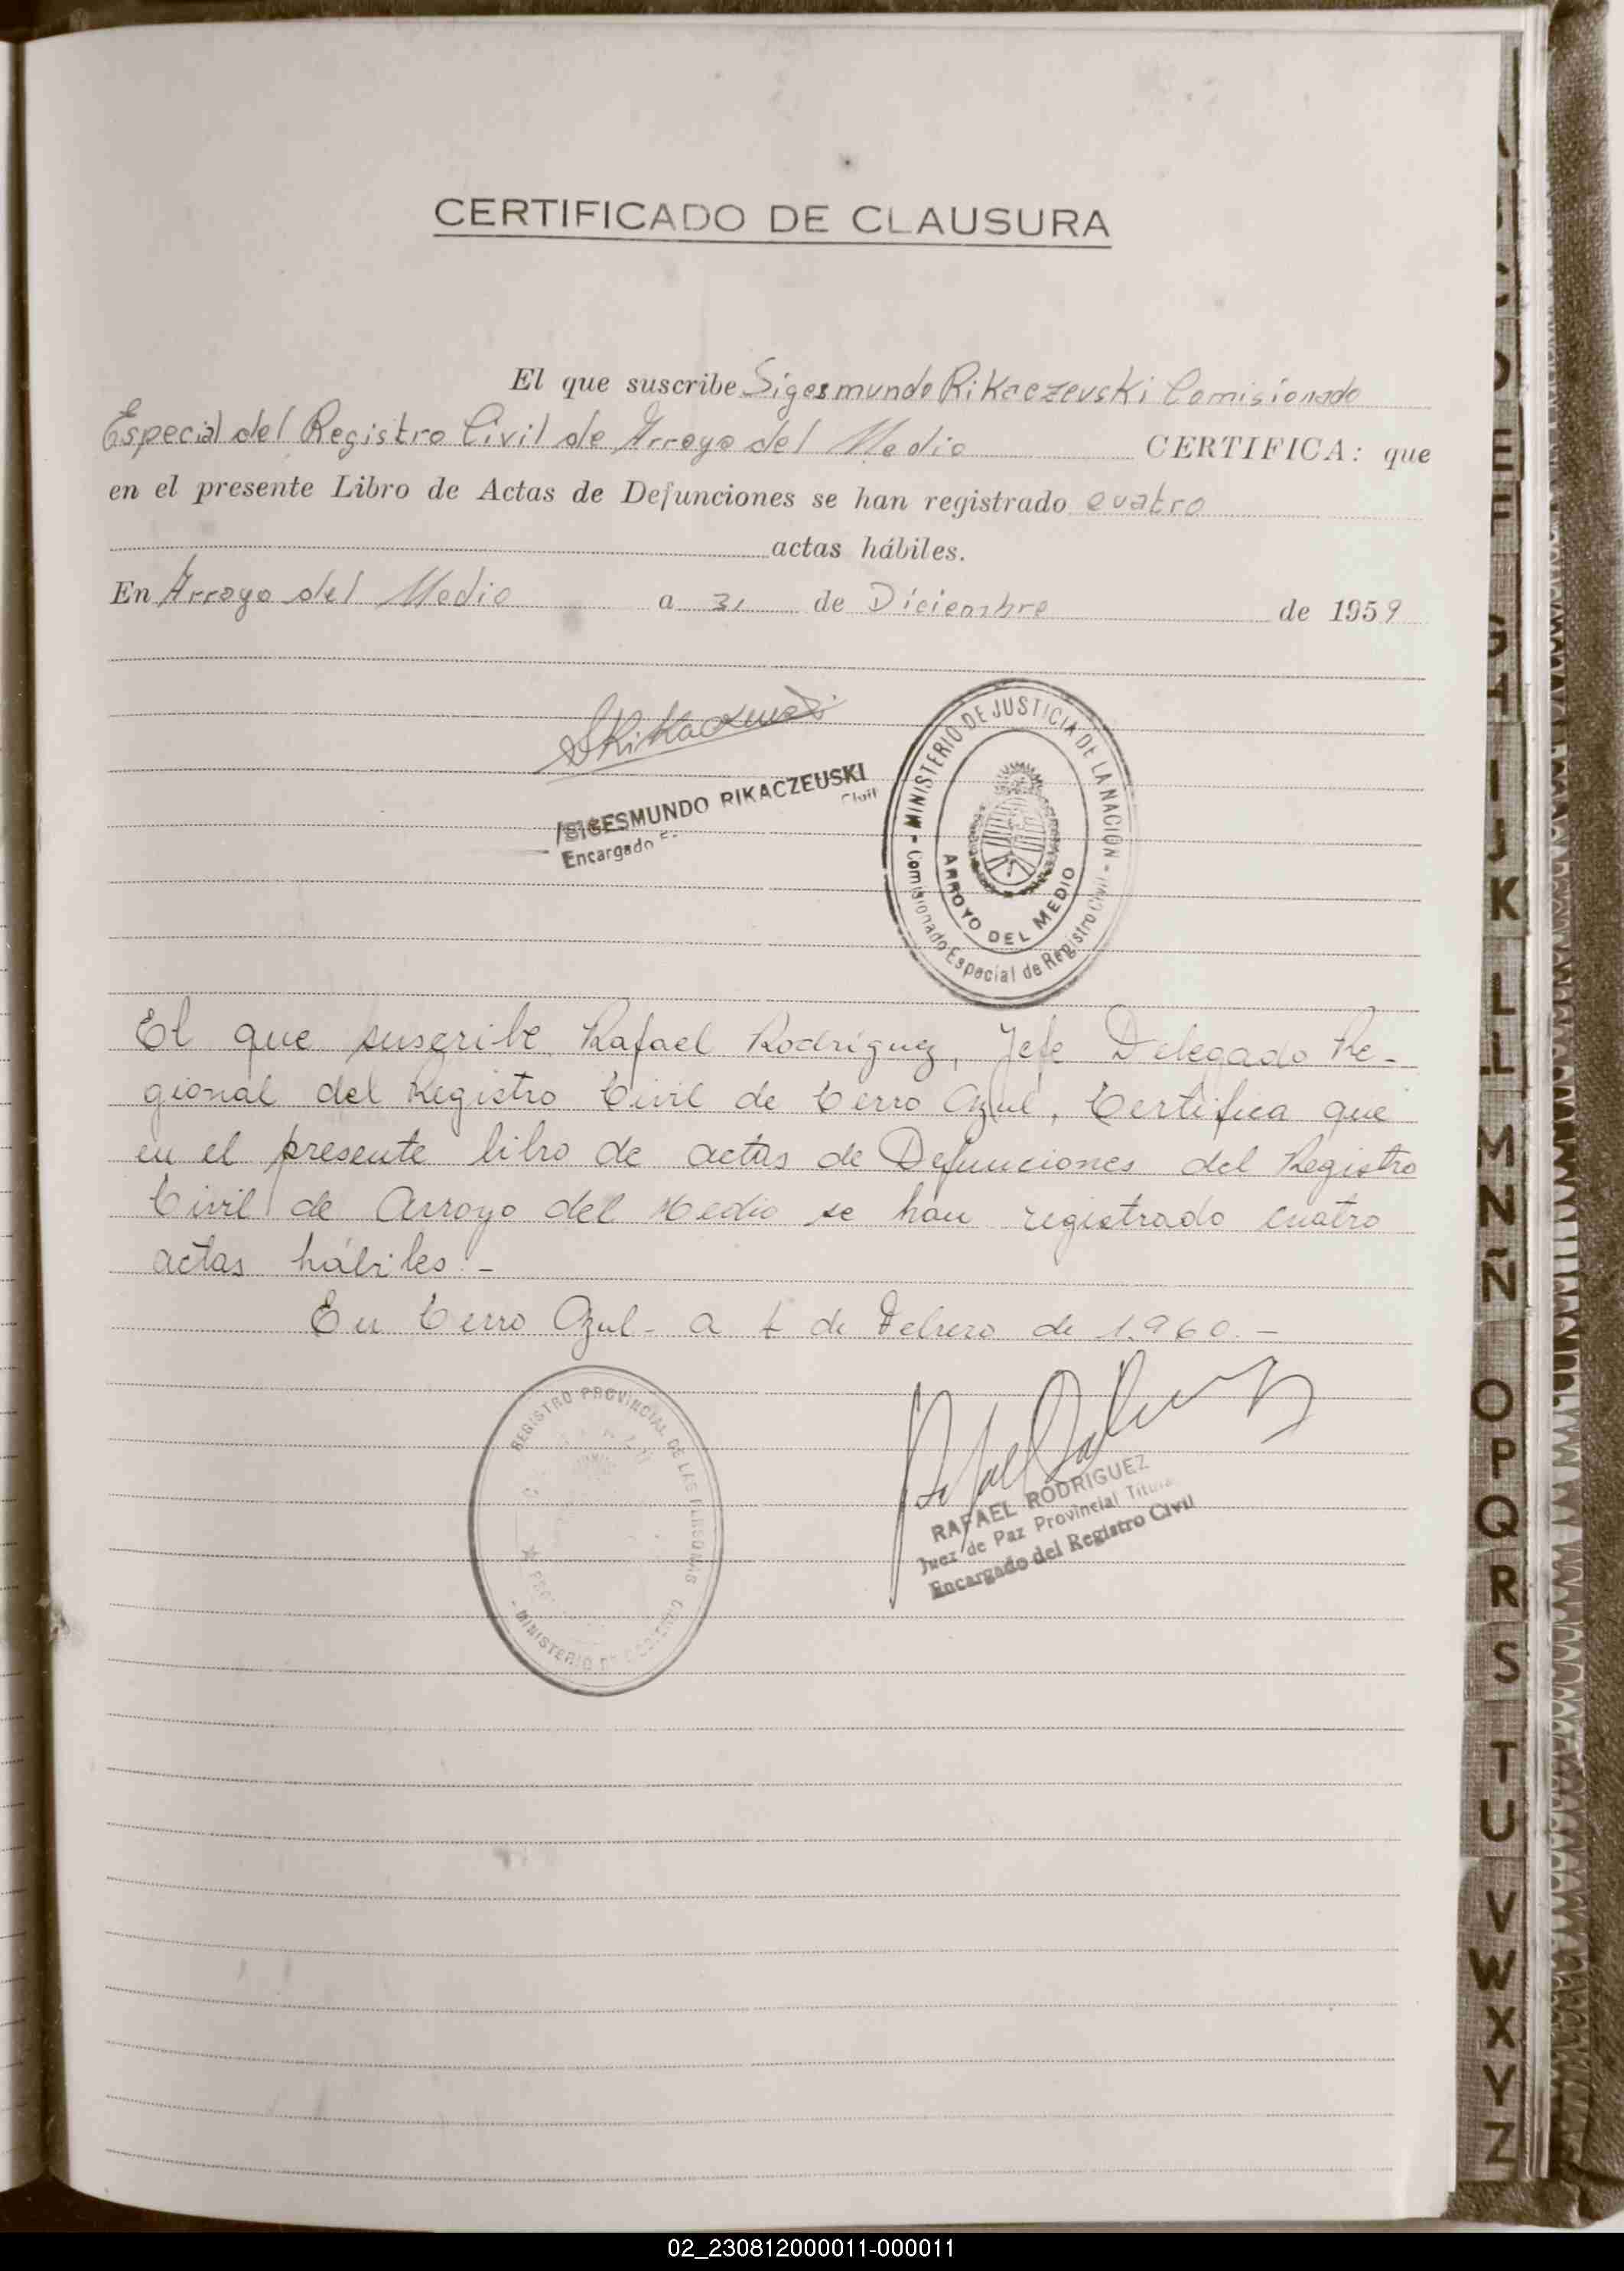 CERTIFICADO DE CLAUSURA
El que suscribe Sigesmundo Rikaczevski Comisionado
Especial del Registro Civil de Arroyo del Medio CERTIFICA: que
en el presente Libro de Actas de Defunciones se han registrado cuatro
actas hábiles.
En Arroyo del Medio a 31 de Diciembre de 1959
SRikaczewski
SIGESMUNDO RIKACZEUSKI
Encargado Civil
MINISTERIO DE JUSTICIA DE LA NACIÓN
ARROYO DEL MEDIO
Comisionado Especial de Registro Civil
El que suscribe Rafael Rodríguez, Jefe Delegado Re-
gional del Registro Civil de Cerro Azul, Certifica que
en el presente libro de actas de Defunciones del Registro
Civil de Arroyo del Medio se han registrado cuatro
actas hábiles.-
En Cerro Azul - a 4 de Febrero de 1.960.-
REGISTRO PROVINCIAL DE LAS PERSONAS
- MINISTERIO DE GOBIERNO
RAFAEL RODRIGUEZ
Juez de Paz Provincial Titular
Encargado del Registro Civil
C
D
E
F
G
H
I
J
K
L
LL
M
N
Ñ
O
P
Q
R
S
T
U
V
W
X
Y
Z
02_230812000011-000011